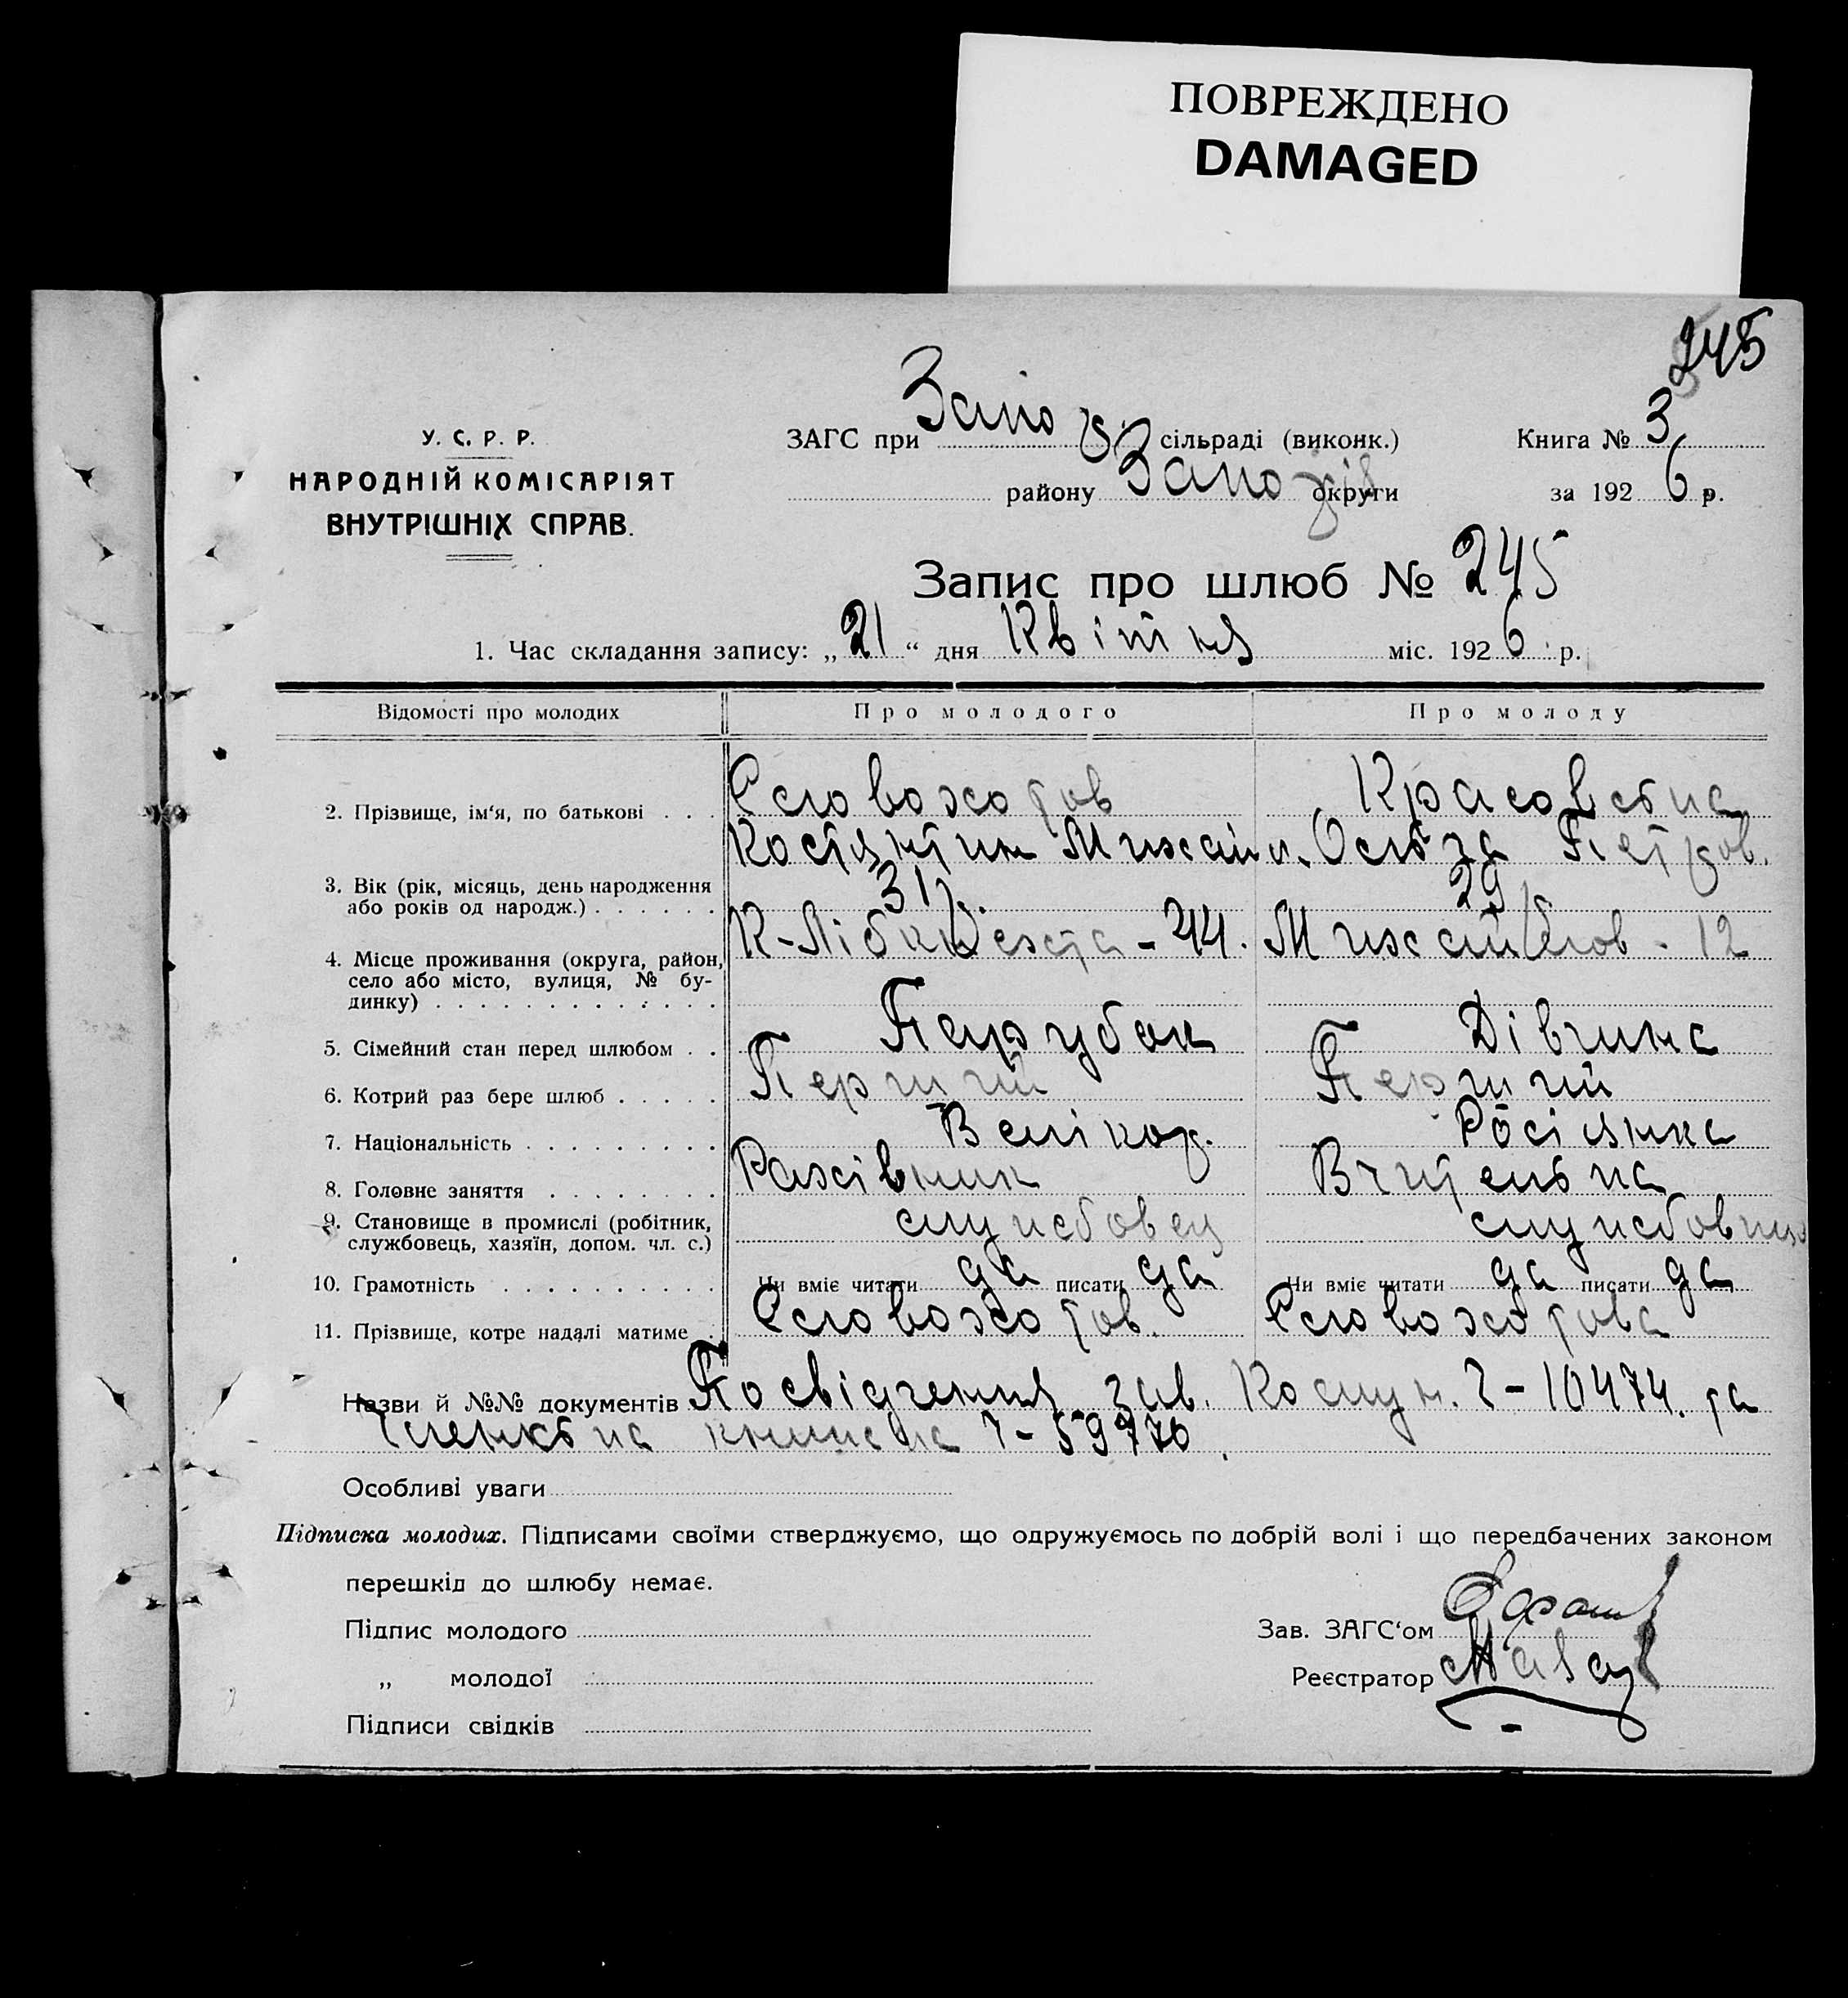 ПОВРЕЖДЕНО
DAMAGED
245
У. С. Р. Р.
НАРОДНІЙ КОМІСАРІЯТ
ВНУТРІШНІХ СПРАВ.
ЗАГС при Запор. сільраді (виконк.)
району Запоріз округи
Книга № 3
за 1926 р.
Запис про шлюб № 245
1. Час складання запису: „21“ дня Квітня міс. 1926 р.
Відомості про молодих Про молодого Про молоду
2. Прізвище, ім'я, по батькові . . . Словохотов Красовська
Костянтин Михайл. Ольга Петров.
3. Вік (рік, місяць, день народження
або років од народж.) . . . . . . 31р. 29р
4. Місце проживання (округа, район,
село або місто, вулиця, № бу-
динку) . . . . . . . . . . . . . К-Лібкнехта - 44. Михайлов - 12
5. Сімейний стан перед шлюбом . . Парубок Дівчина
6. Котрий раз бере шлюб . . . . . Перший Перший
7. Національність . . . . . . . . . Велікор. Росіянка
8. Головне заняття . . . . . . . . Рахівник Вчителька
9. Становище в промислі (робітник,
службовець, хазяїн, допом. чл. с.) служсбовец служсбовиця
10. Грамотність . . . . . . . . . . Чи вміє читати да писати да Чи вміє читати да писати да
11. Прізвище, котре надалі матиме . Словохотов. Словохотова
Назви й №№ документів Посвідчення зав. Комун. 2-10474. та
Членська книжка 7-59770.
Особливі уваги
Підписка молодих. Підписами своїми стверджуємо, що одружуємось по добрій волі і що передбачених законом
перешкід до шлюбу немає.
Підпис молодого
„ молодої
Підписи свідків
Зав. ЗАГС'ом
Реєстратор